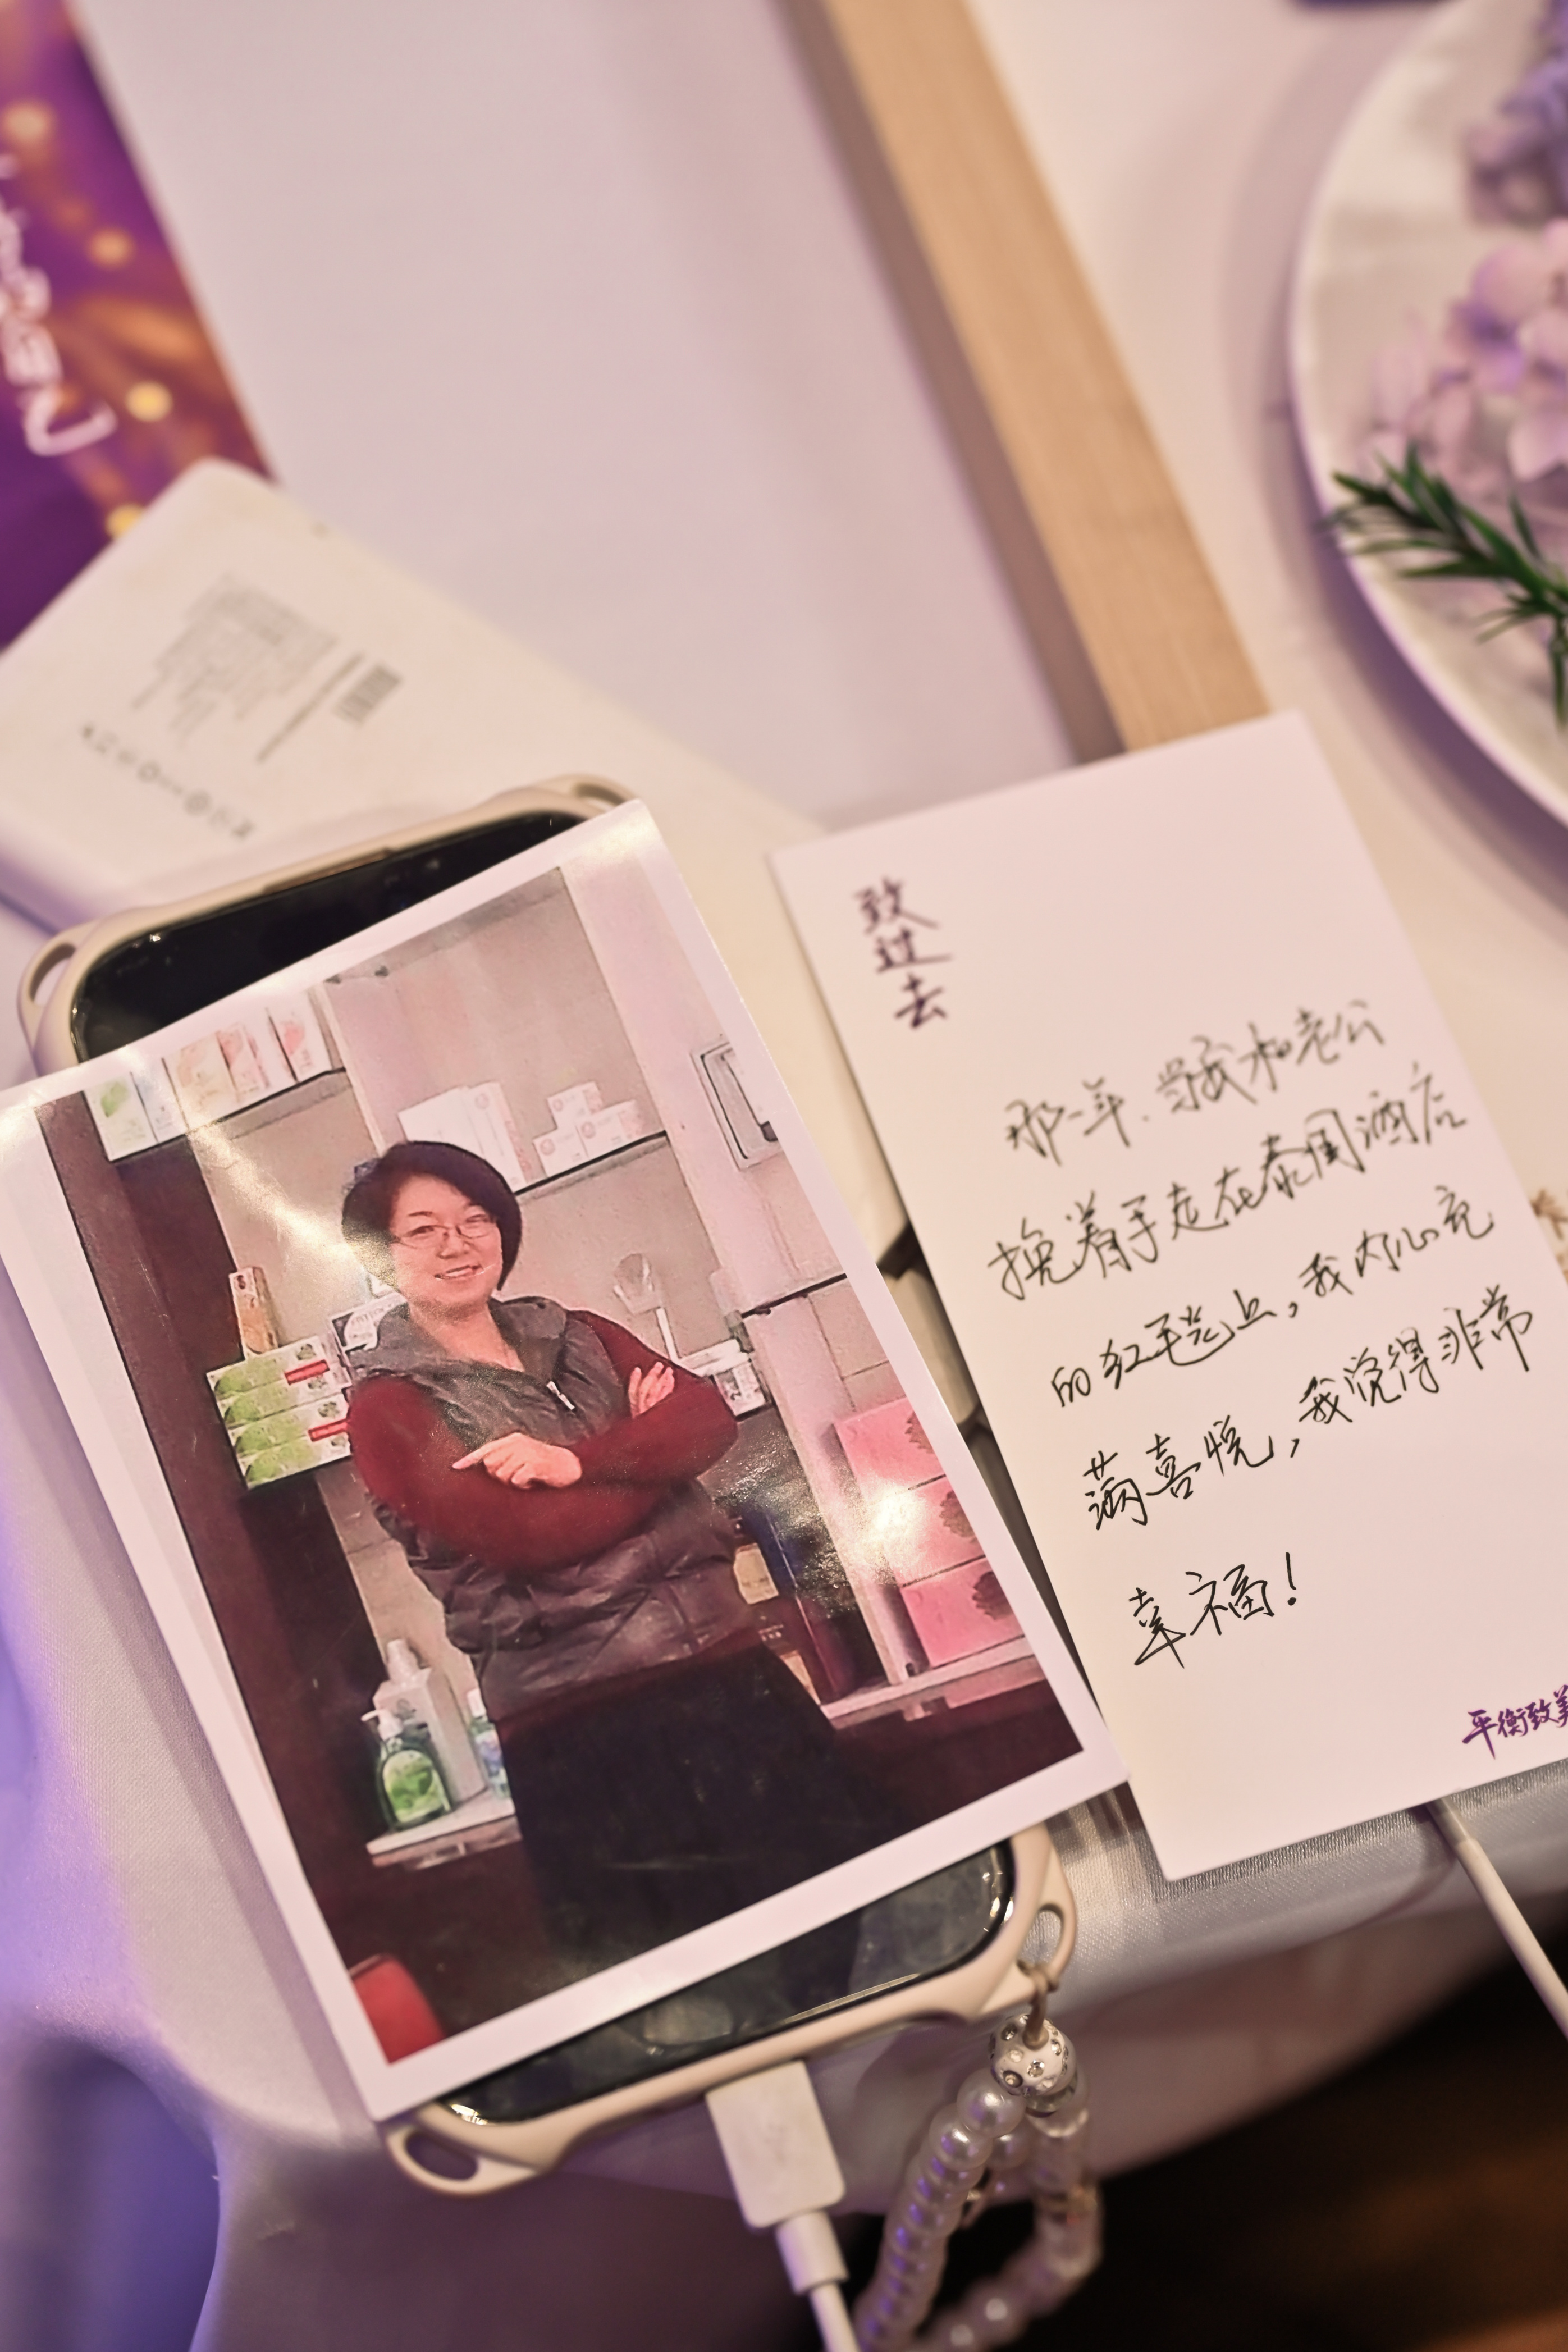 致过去
那一年.当我和老公
挽着手走在泰国酒店
的红毯上，我内心充
满喜悦，我觉得非常
幸福！
平衡致美